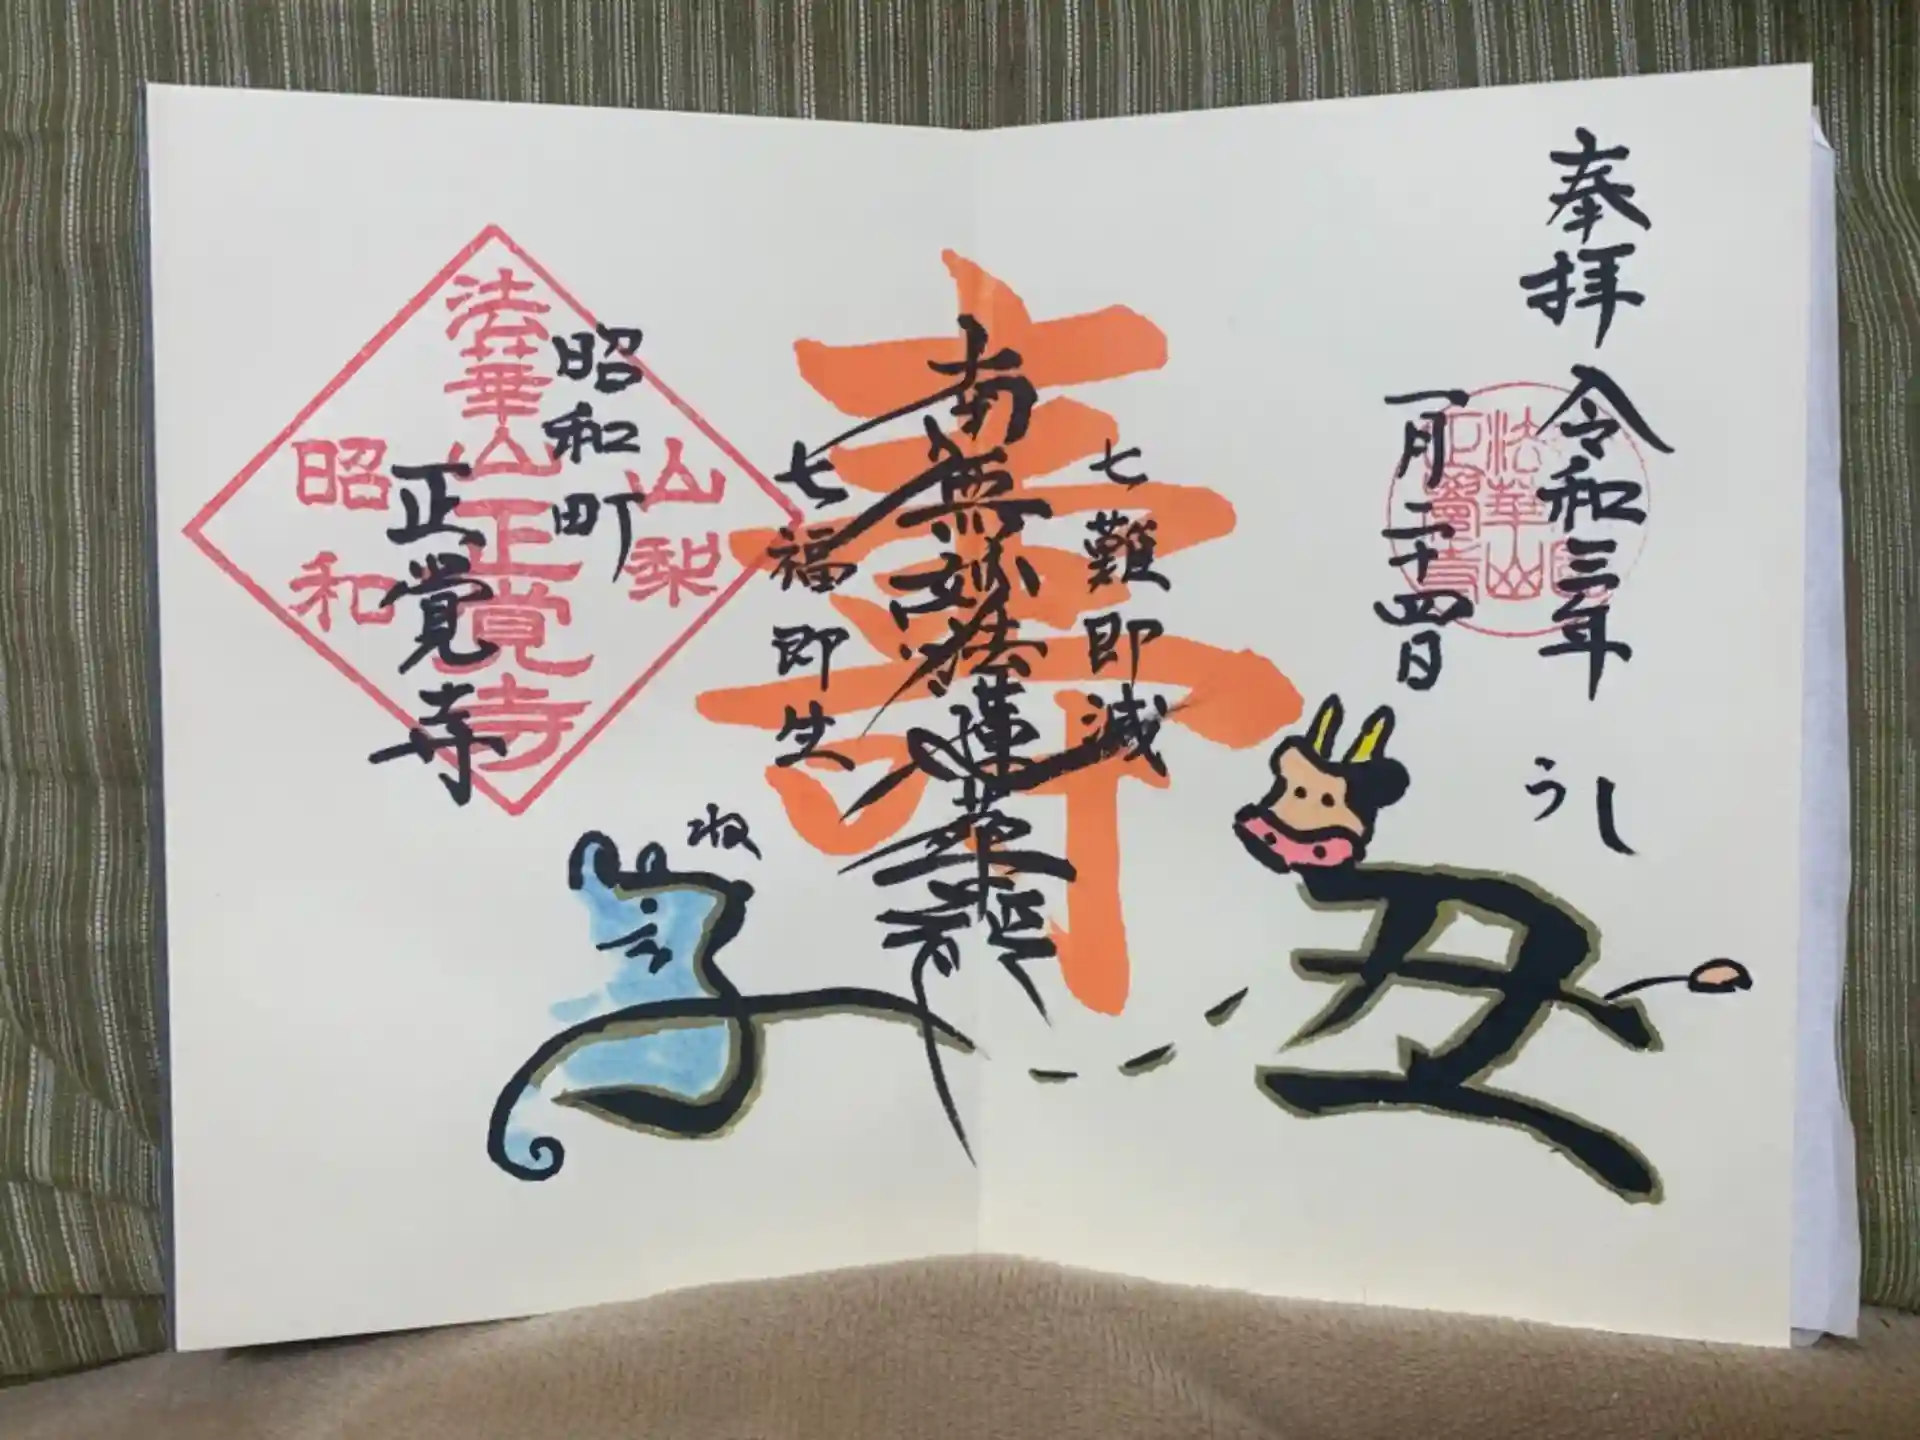 奉拝
令和三年
一月二十四日
法華山
正覺寺
うし
丑
寿
七難即滅
南無妙法蓮華経
七福即生
ね
子
昭和町
正覚寺
山梨
法華山正覚寺
昭和